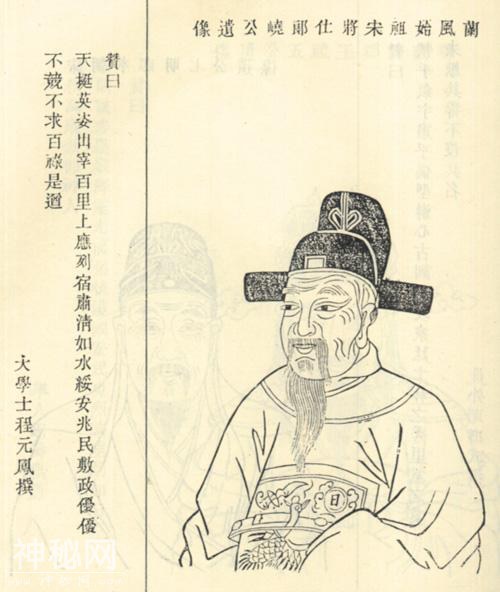 蘭風始祖宋將仕郎嶢公遺像
贊曰
天挺英姿出宰百里上應列宿肅清如水綏安兆民敷政優優
不競不求百祿是遒
大學士程元鳳撰
神秘网